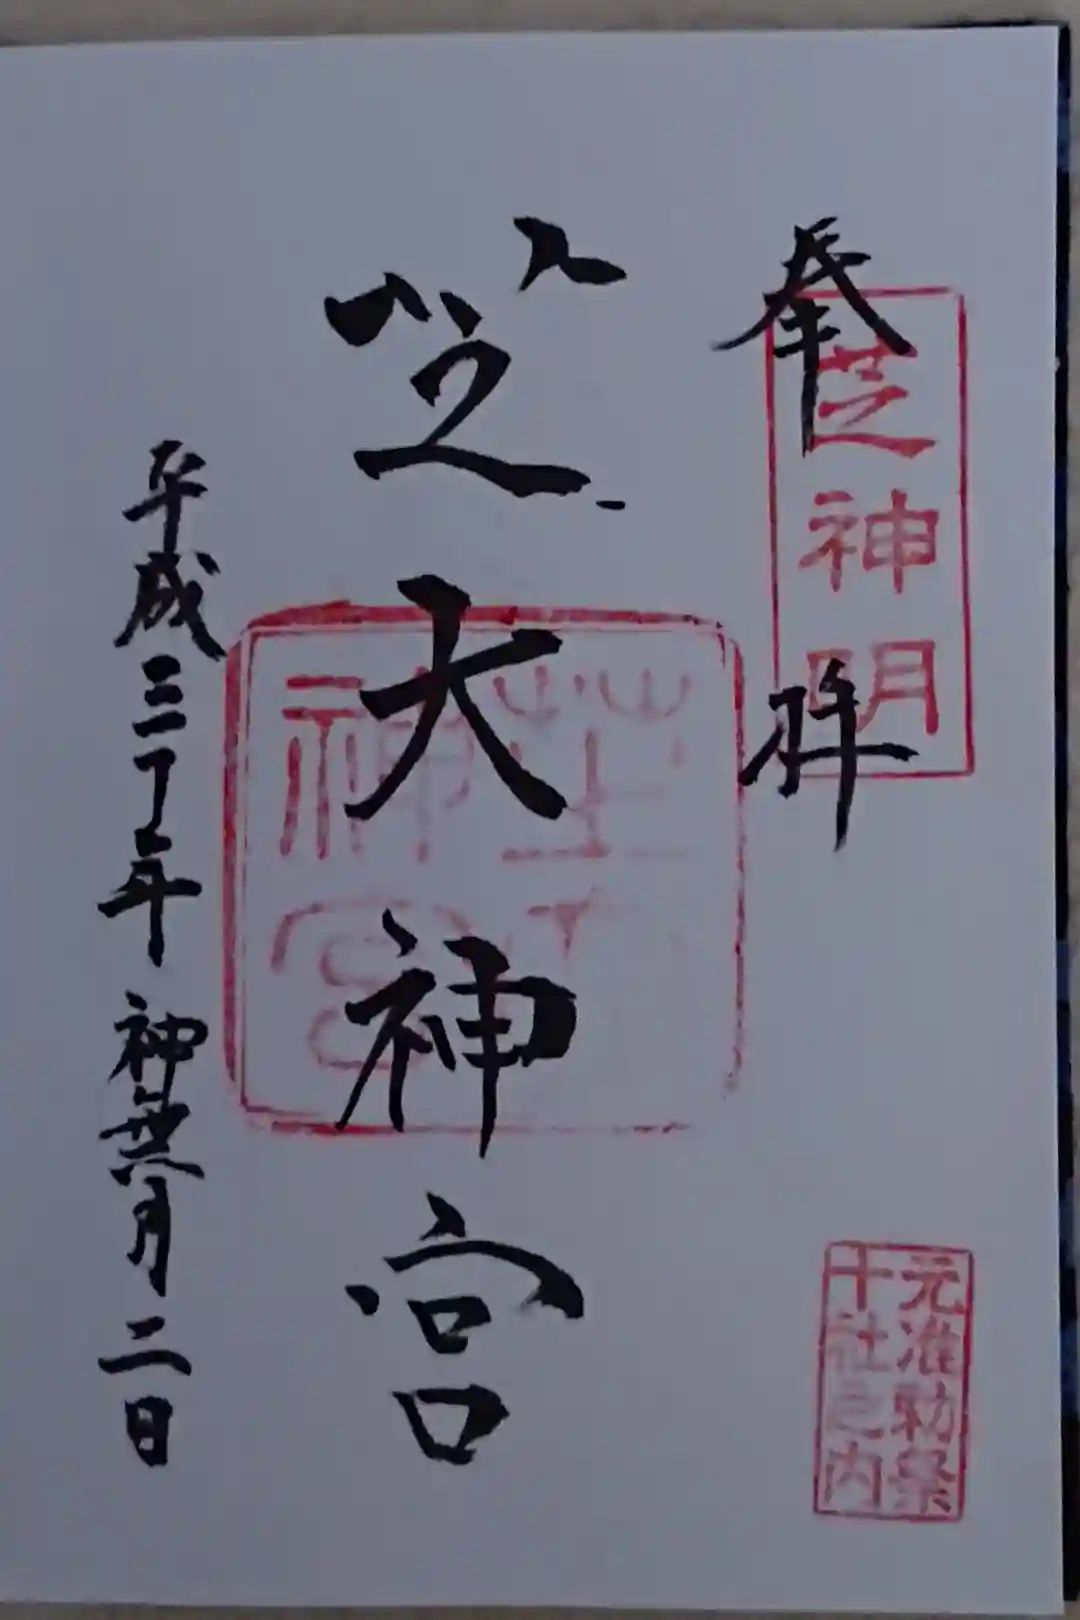 奉拝
芝神明
芝大神宮
芝大
神宮
平成三十年神無月二日
元准勅祭
十社之内